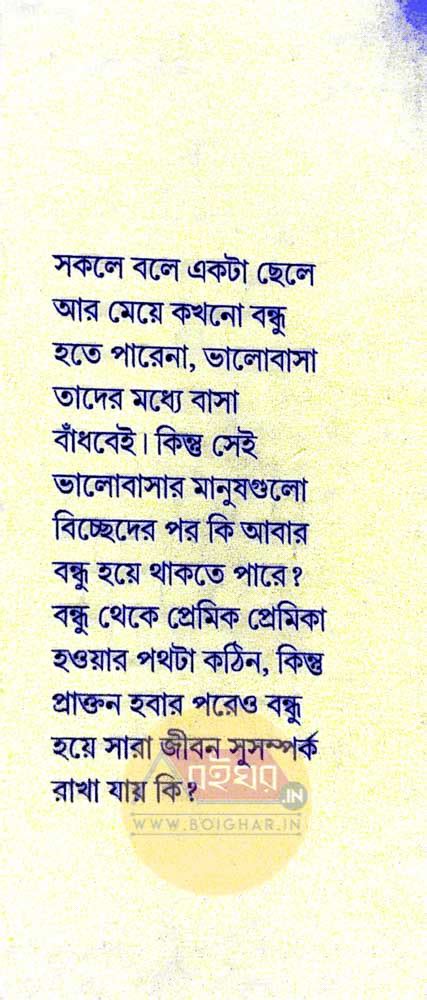 সকলে বলে একটা ছেলে
আর মেয়ে কখনো বন্ধু
হতে পারেনা, ভালোবাসা
তাদের মধ্যে বাসা
বাঁধবেই। কিন্তু সেই
ভালোবাসার মানুষগুলো
বিচ্ছেদের পর কি আবার
বন্ধু হয়ে থাকতে পারে?
বন্ধু থেকে প্রেমিক প্রেমিকা
হওয়ার পথটা কঠিন, কিন্তু
প্রাক্তন হবার পরেও বন্ধু
হয়ে সারা জীবন সুসম্পর্ক
রাখা যায় কি?
বইঘর
.IN
WWW.BOIGHAR.IN